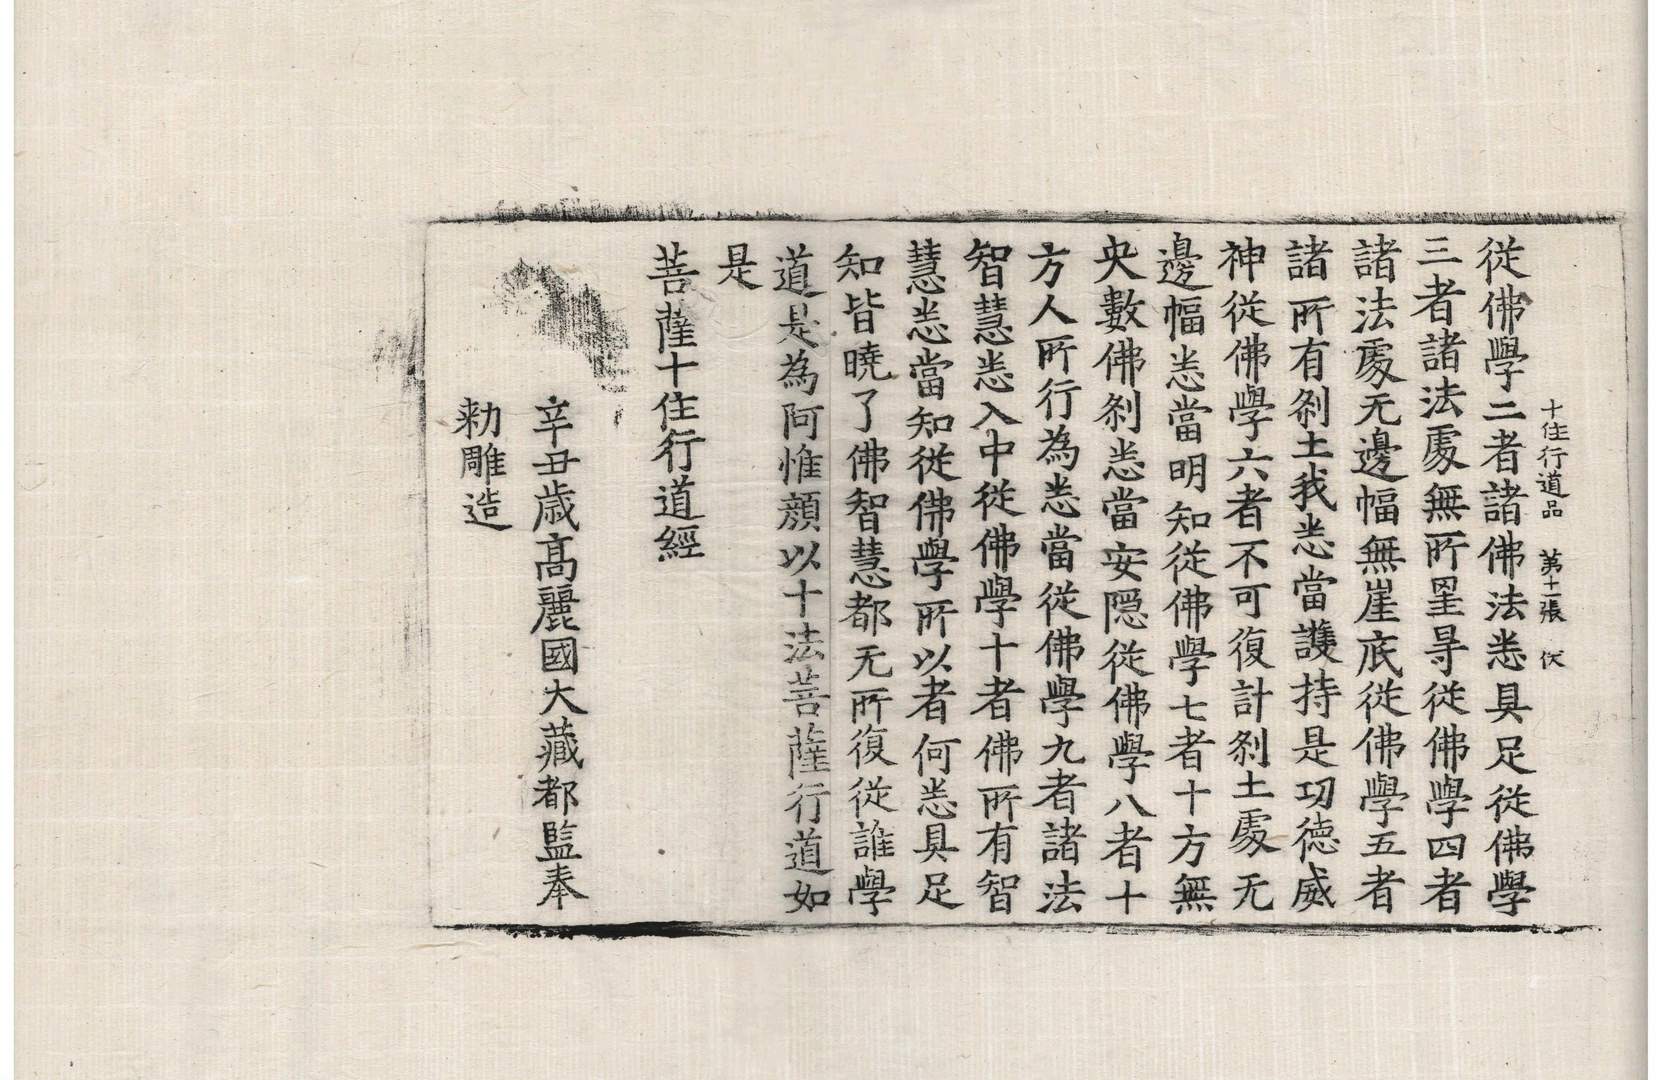 十住行道品 苐十一張 伏
從佛學二者諸佛法悉具足從佛學
三者諸法處無所罣㝵從佛學四者
諸法處无邊幅無崖底從佛學五者
諸所有刹土我悉當護持是功德威
神從佛學六者不可復計刹土處无
邊幅悉當明知從佛學七者十方無
央數佛刹悉當安隱從佛學八者十
方人所行為悉當從佛學九者諸法
智慧悉入中從佛學十者佛所有智
慧悉當知從佛學所以者何悉具足
知皆曉了佛智慧都无所復從誰學
道是為阿惟顔以十法菩薩行道如
是
菩薩十住行道經
辛丑歲高麗國大藏都監奉
勅雕造